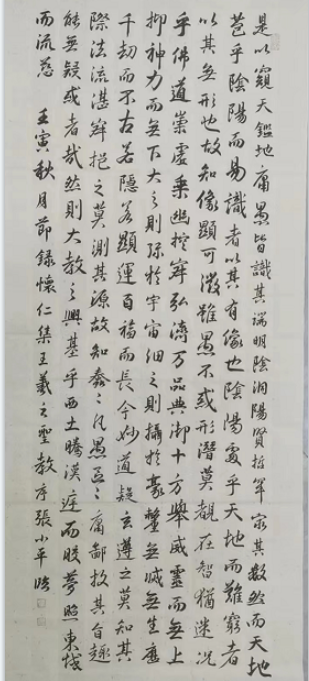 是以窺天鑑地庸愚皆識其端明陰洞陽賢哲罕窮其數然而天地
苞乎陰陽而易識者以其有像也陰陽處乎天地而難窮者
以其無形也故知像顯可徵雖愚不惑形潛莫覩在智猶迷況
乎佛道崇虛乘幽控寂弘濟萬品典御十方舉威靈而無上
抑神力而無下大之則彌於宇宙細之則攝於豪釐無滅無生歷
千劫而不古若隱若顯運百福而長今妙道凝玄遵之莫知其
際法流湛寂挹之莫測其源故知蠢々凡愚區々庸鄙投其旨趣
能無疑或者哉然則大教之興基乎西土騰漢庭而皎夢照東域
而流慈 壬寅秋月節錄懷仁集王羲之聖教序張小平臨